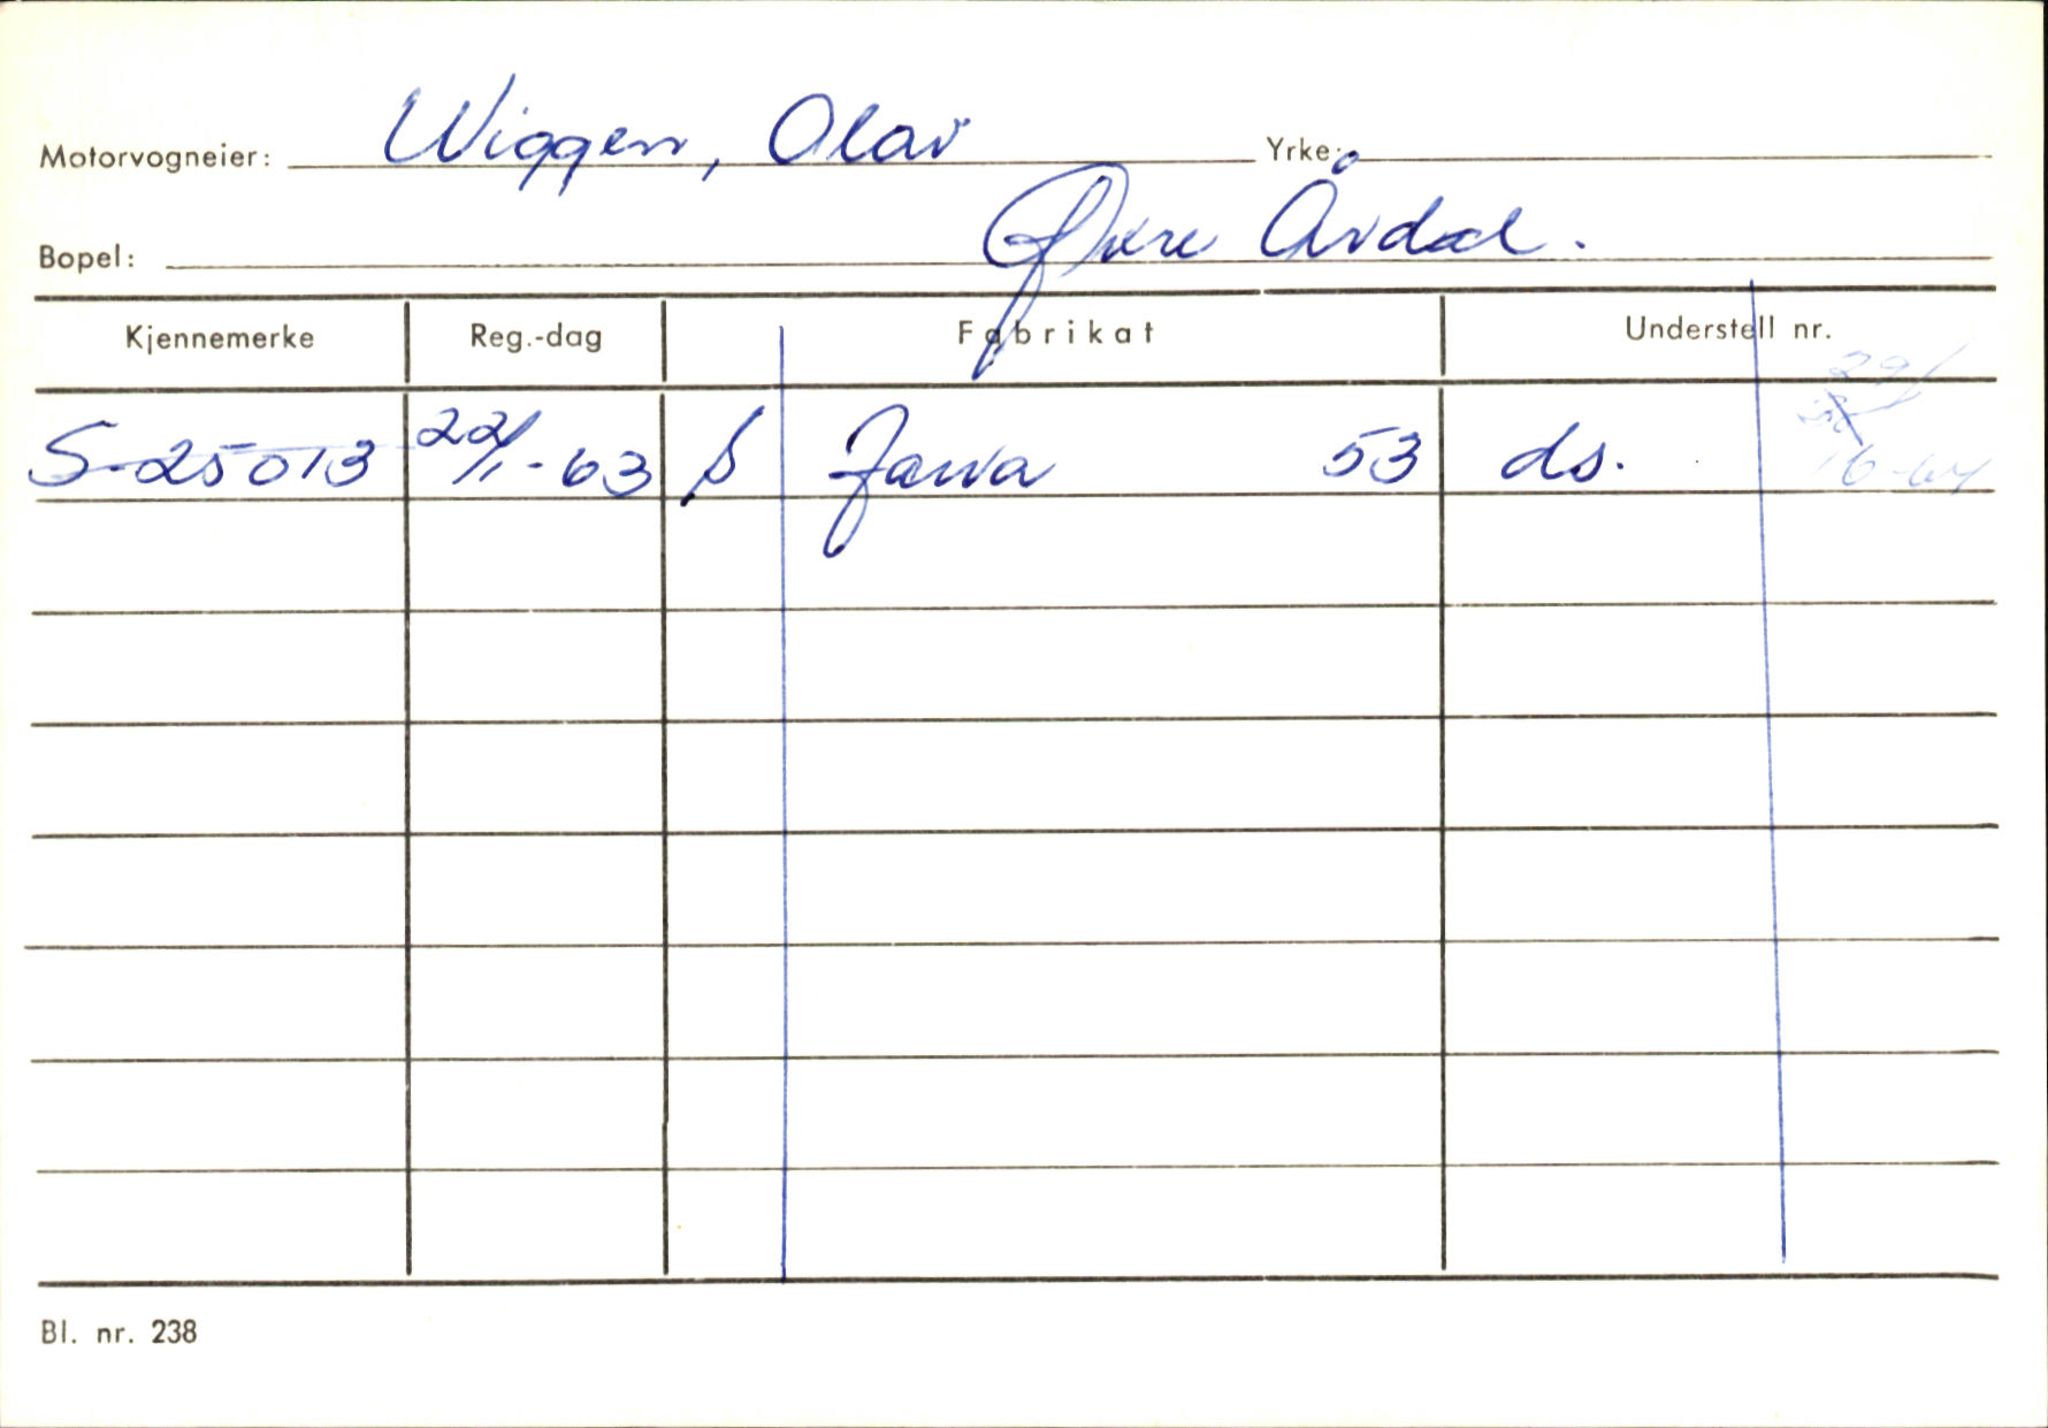 Motorvogneier: Wiggen, Olav Yrke:
Bopel: Øvre Årdal.
Kjennemerke Reg.-dag Fabrikat Understell nr.
29/
S-25013 22/1-63 s Jawa 53 ds. 6-64
Bl. nr. 238